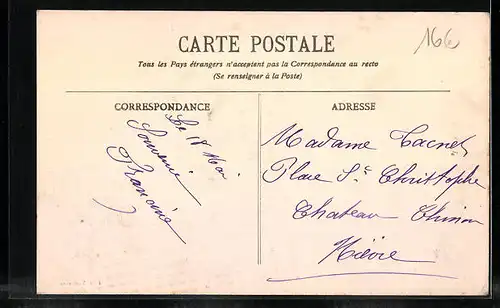 166
CARTE POSTALE
Tous les Pays étrangers n'acceptent pas la Correspondance au recto
(Se renseigner à la Poste)
CORRESPONDANCE
Le 18 Mai
Souvenir
Francine
ADRESSE
Madame Tacnet
Place St Christophe
Chateau Chinon
Nièvre